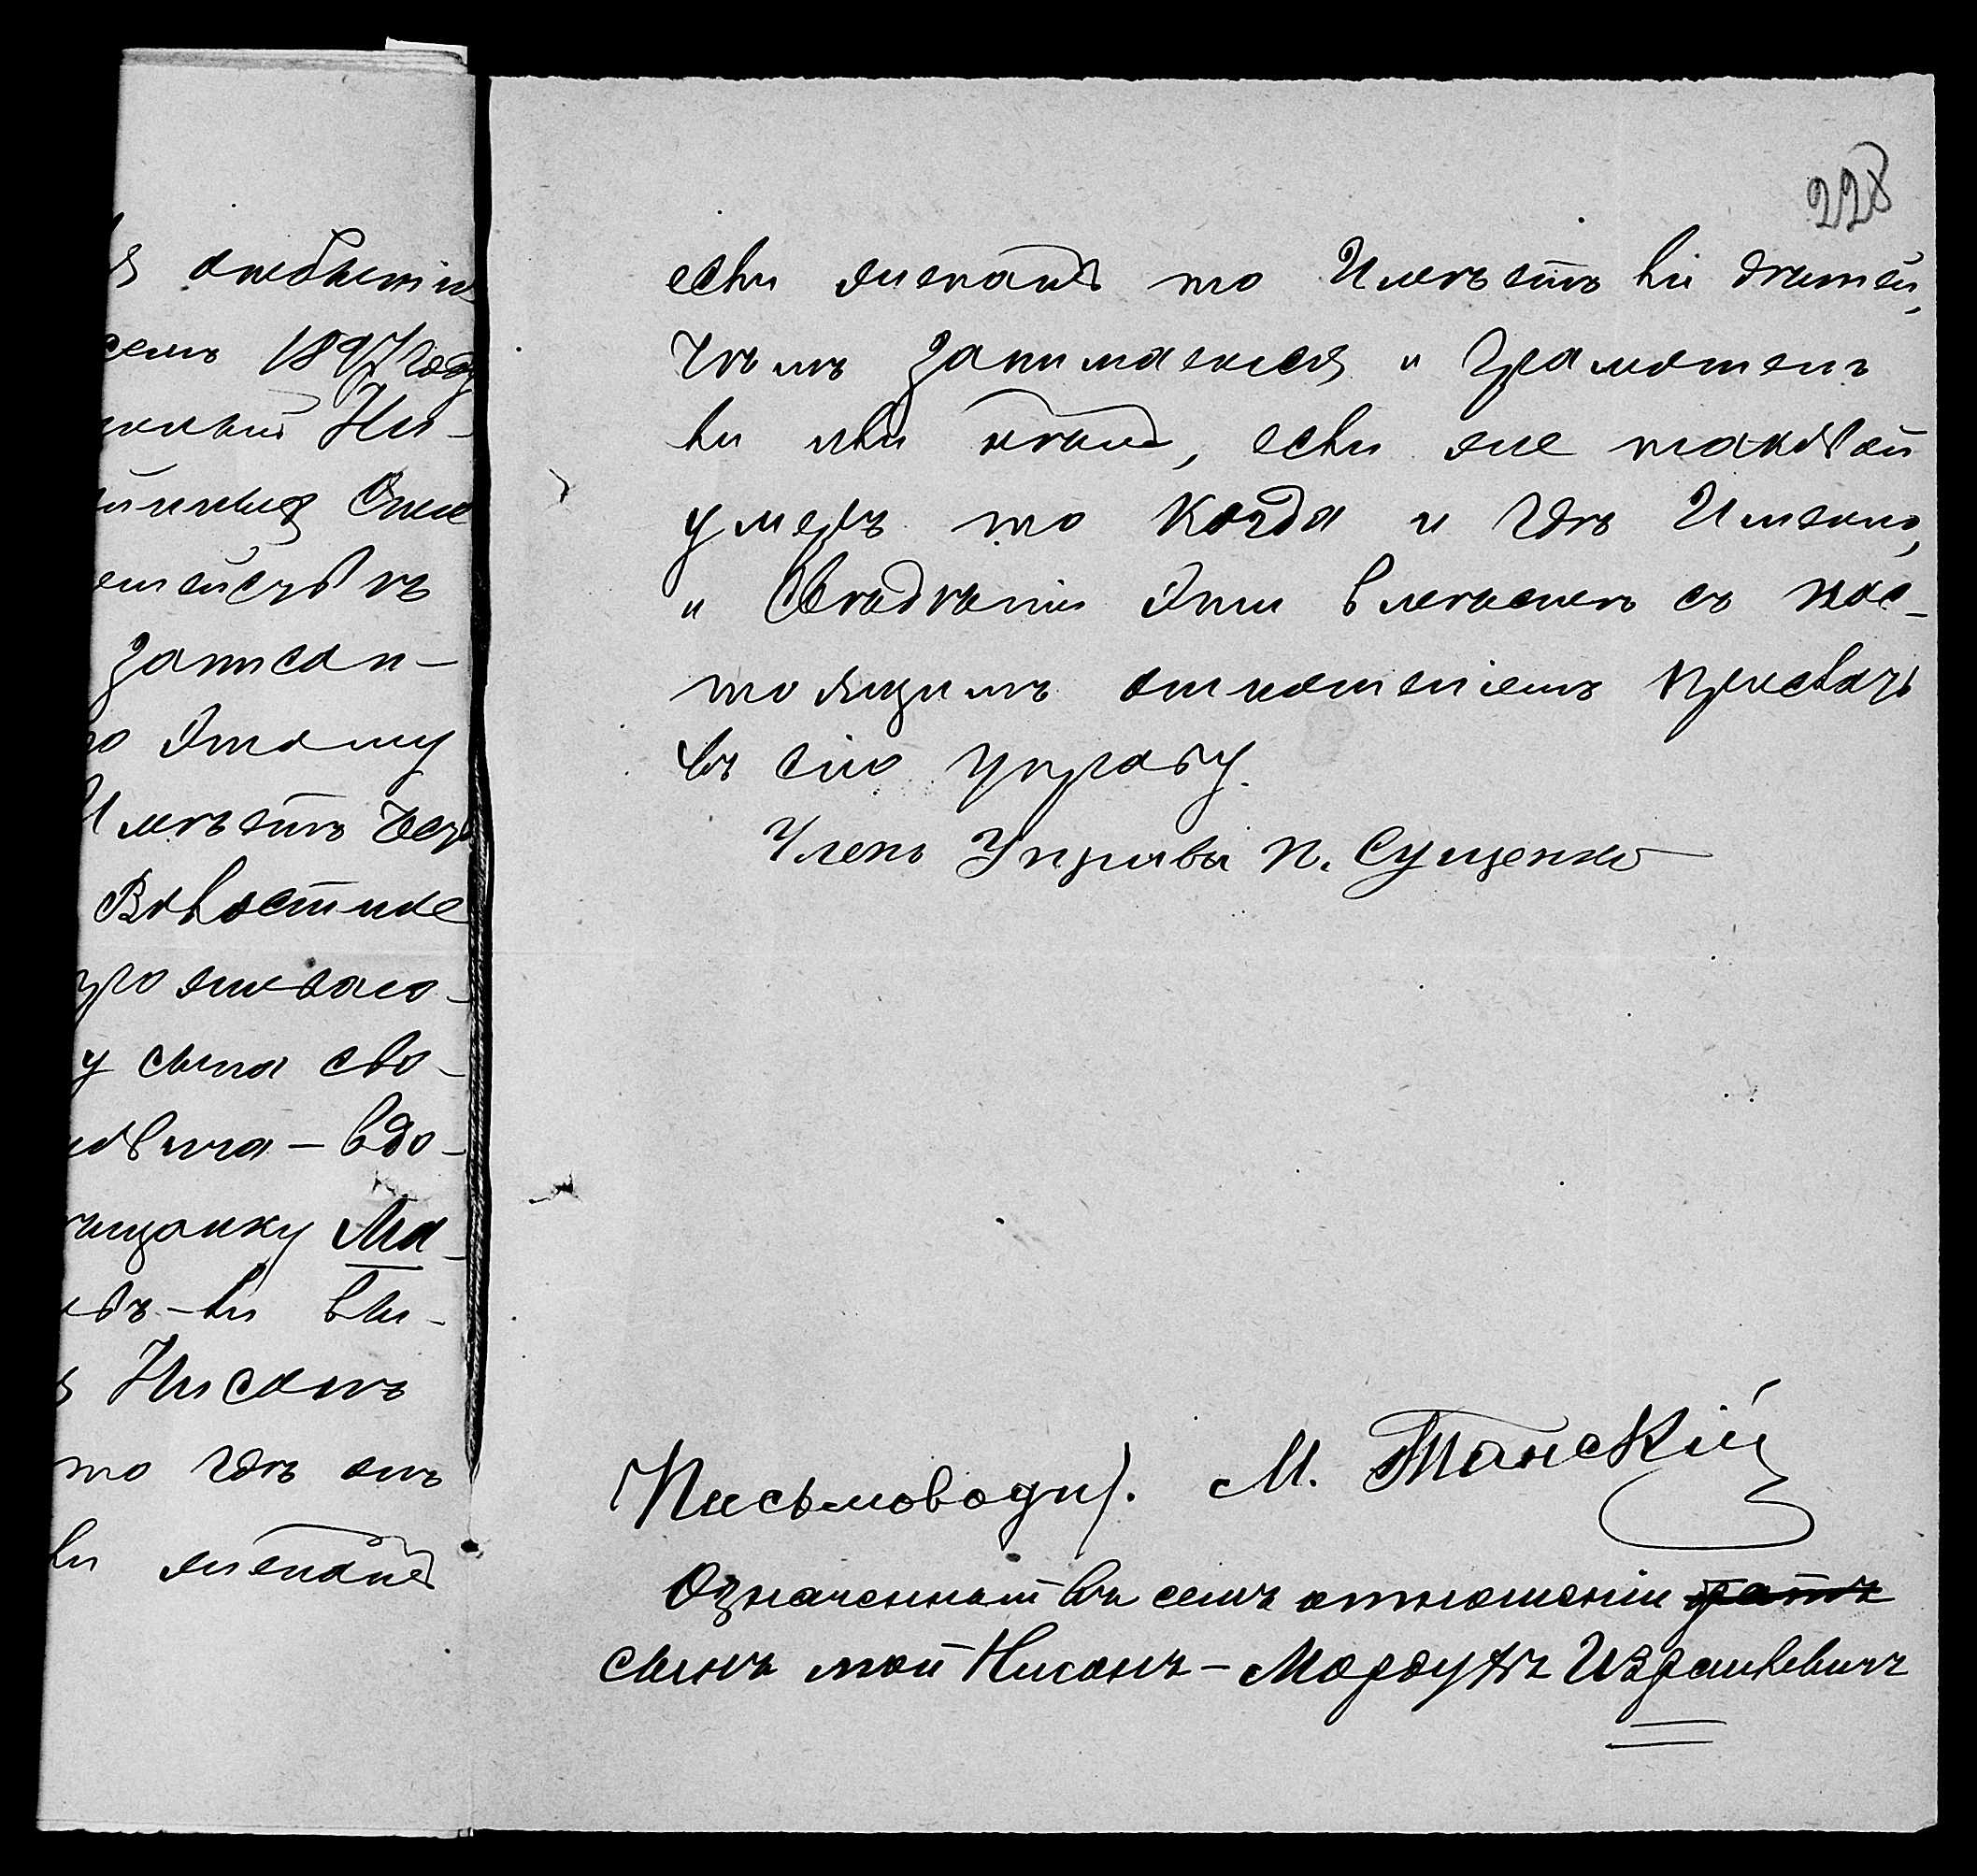 228
если женатъ то Имѣетъ ли дѣтей,
чѣмъ занимается и грамотенъ
ли или нѣтъ, если же таковой
умеръ то когда и гдѣ Именно,
и Свѣдѣнія эти вмѣстѣ съ нас-
тоящимъ отношеніемъ прислать
въ сію управу.
Членъ Управы П. Сущенко
Письмоводит. М. Танскій
Означенный въ семъ отношеніи
сынъ мой Нисонъ-Мордухъ Израилевичъ
семъ 1897 году
Ни-
записан-
этому
Имѣетъ
Волостное
прожеваю-
у сына сво-
вдо-
щанку Ма-
ли вы-
Нисонъ
то гдѣ онъ
ли женатъ